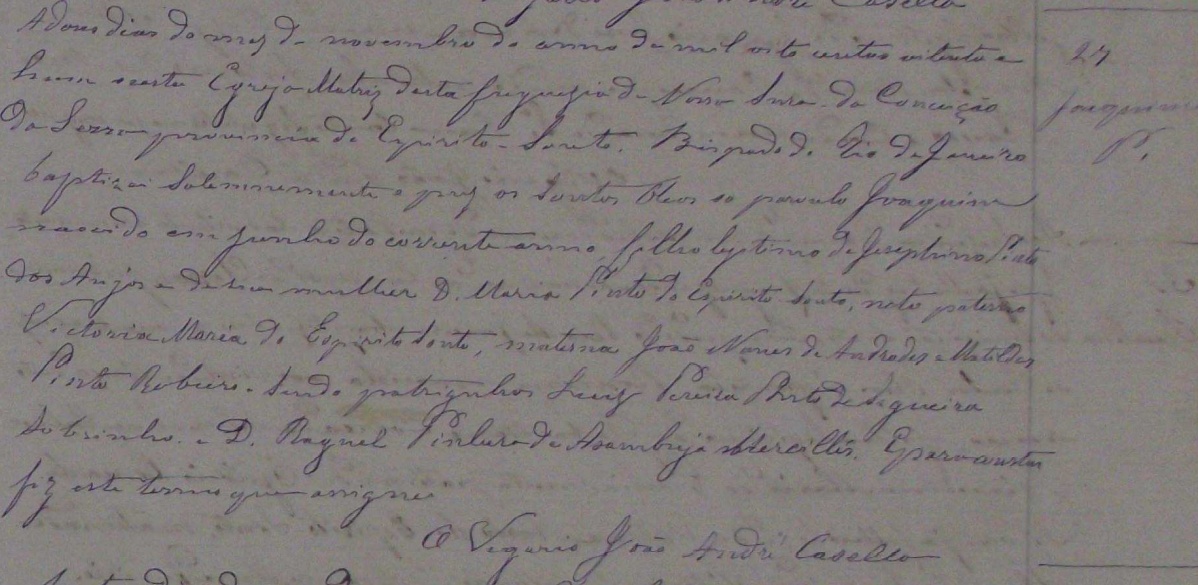 João André Casella
A dous dias do mez de novembro do anno de mil oito centos oitenta e
hum nesta Egreja Matriz desta freguezia de Nossa Snra. da Conceição
da Serra provincia do Espirito-Santo. Bispado do Rio de Janeiro
baptizei Solemnemente e puz os Santos Oleos ao parvulo Joaquim
nascido em junho do corrente anno, filho legitimo de Josephino Pinto
dos Anjos e de sua mulher D. Maria Pinto do Espirito Santo, neto paterno
Victoria Maria do Espirito Santo, materna João Nunes de Andrades e Matildes
Pinto Ribeiro. Sendo patrinhos Luiz Pereira Pinto de Siqueira
Sobrinho e D. Raquel de Asambuja Meirelles. E para constar
fiz este termo que assignei
O Vegario João André Casella
27
Joaquim
P.